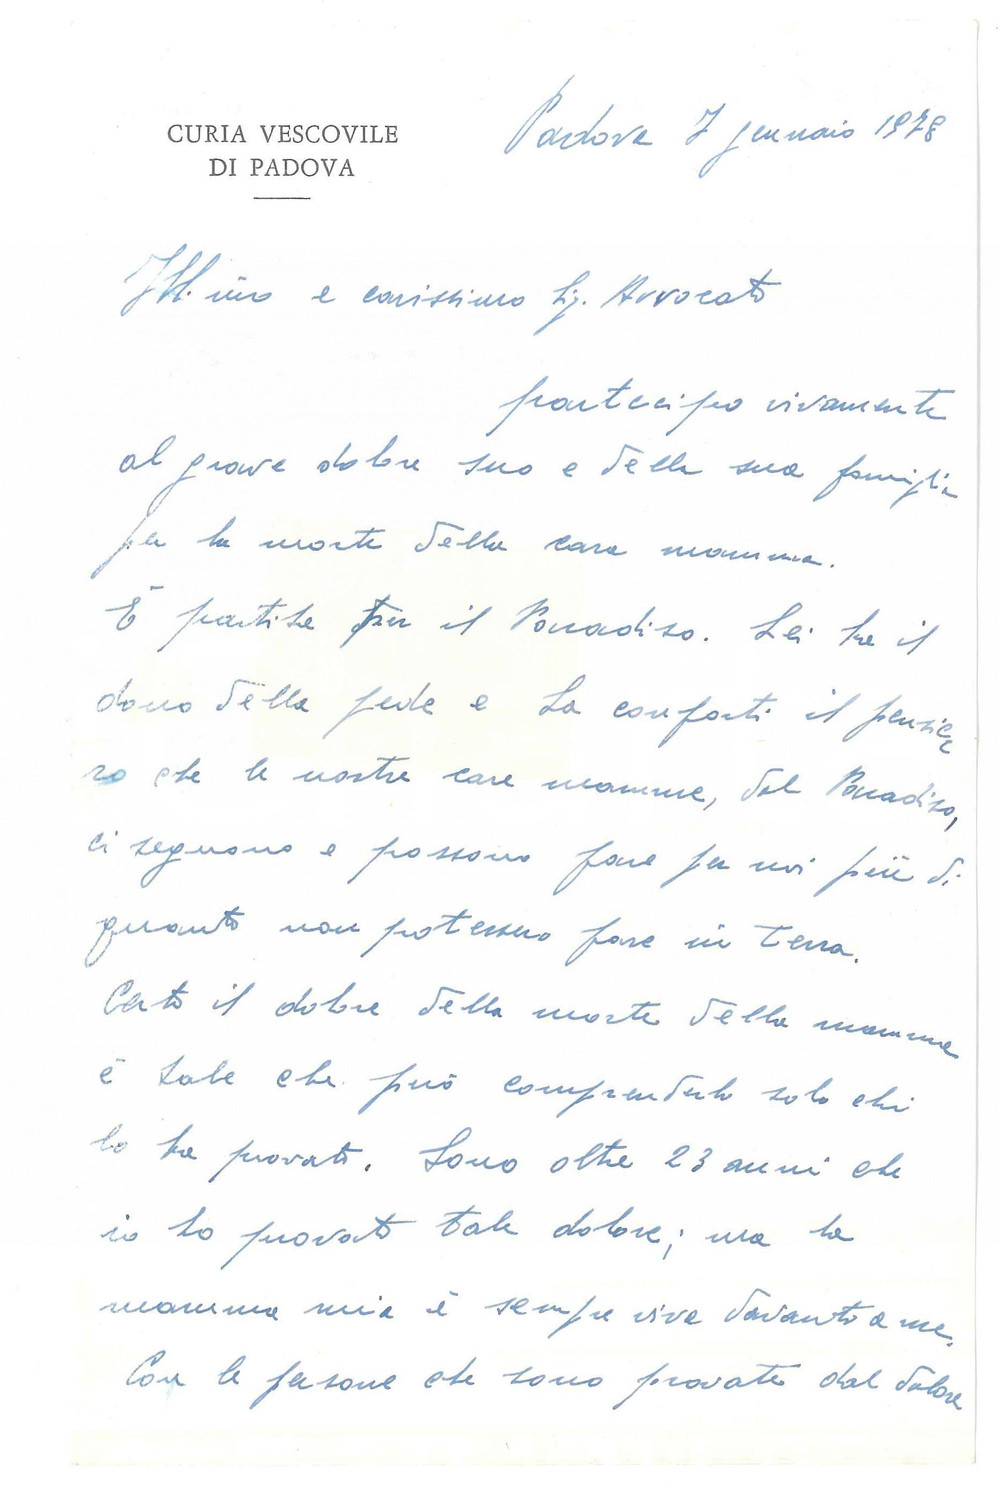 CURIA VESCOVILE
DI PADOVA
Padova 7 gennaio 1978
Ill.mo e carissimo Sig. Avvocato
partecipo vivamente
al grave dolore suo e della sua famiglia
per la morte della cara mamma.
È partita per il Paradiso. Lei ha il
dono della fede e La conforti il pensie
ro che le nostre care mamme, dal Paradiso,
ci seguono e possono fare per noi più di
quanto non potessero fare in terra.
Certo il dolore della morte della mamma
è tale che può comprenderlo solo chi
lo ha provato. Sono oltre 23 anni che
io ho provato tale dolore; ma la
mamma mia è sempre viva davanti a me.
Con le persone che sono provate dal dolore